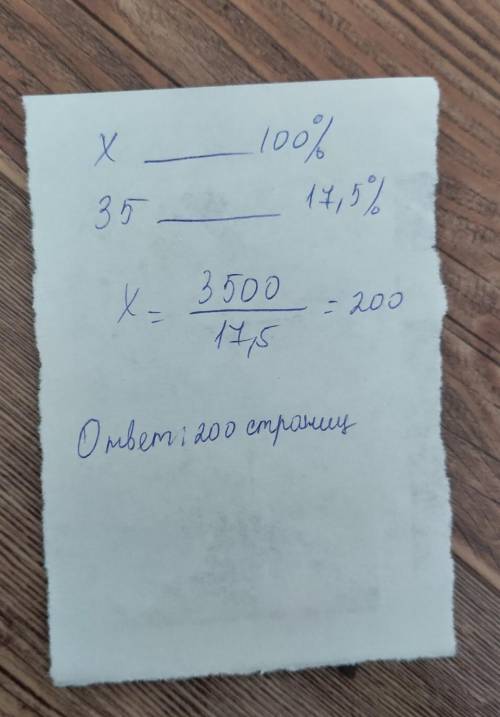 X —— 100%
35 —— 17,5%
X = 3500 / 17,5 = 200
Ответ: 200 страниц